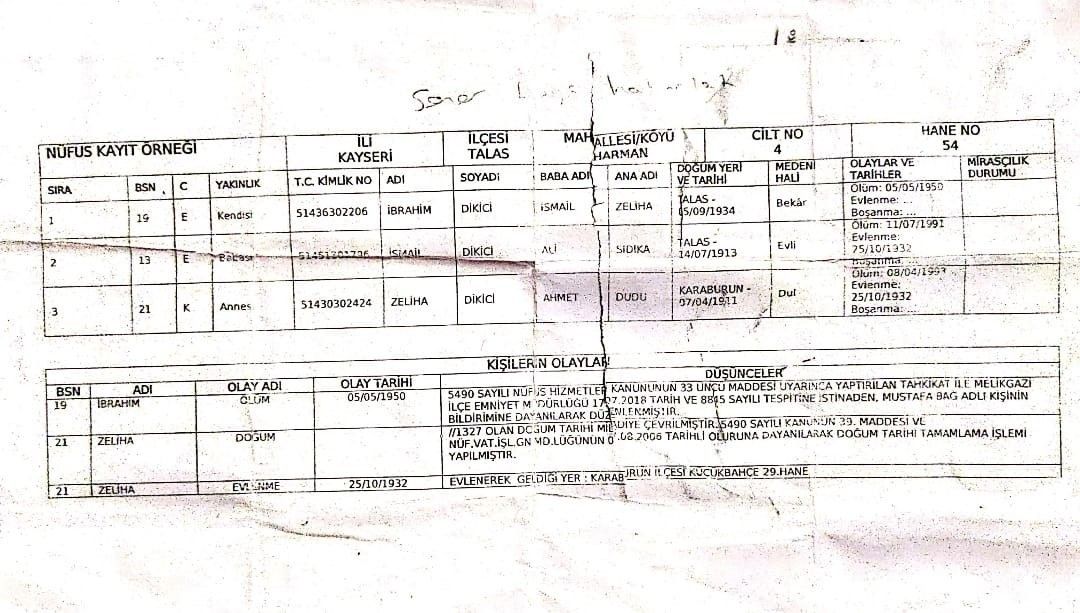 18
NÜFUS KAYIT ÖRNEĞİ İLİ KAYSERİ İLÇESİ TALAS MAHALLESİ/KÖYÜ HARMAN CİLT NO 4 HANE NO 54
SIRA BSN C YAKINLIK T.C. KİMLİK NO ADI SOYADI BABA ADI ANA ADI DOĞUM YERİ VE TARİHİ MEDENİ HALİ OLAYLAR VE TARİHLER MİRASÇILIK DURUMU
1 19 E Kendisi 51436302206 İBRAHİM DİKİCİ İSMAİL ZELİHA TALAS - 05/09/1934 Bekâr Ölüm: 05/05/1950 Evlenme: ... Boşanma: ...
2 13 E Babası İSMAİL DİKİCİ ALİ SIDIKA TALAS - 14/07/1913 Evli Ölüm: 11/07/1991 Evlenme: 25/10/1932 Boşanma: ...
3 21 K Annes 51430302424 ZELİHA DİKİCİ AHMET DUDU KARABURUN - 07/04/1911 Dul Ölüm: 08/04/1993 Evlenme: 25/10/1932 Boşanma: ...
KİŞİLERİN OLAYLARI
BSN ADI OLAY ADI OLAY TARİHİ DÜŞÜNCELER
19 İBRAHİM ÖLÜM 05/05/1950 5490 SAYILI NÜFUS HİZMETLER KANUNUNUN 33 ÜNCÜ MADDESİ UYARINCA YAPTIRILAN TAHKİKAT İLE MELİKGAZİ
İLÇE EMNİYET MÜDÜRLÜĞÜ 17.07.2018 TARİH VE 8845 SAYILI TESPİTİNE İSTİNADEN, MUSTAFA BAG ADLI KİŞİNİN
BİLDİRİMİNE DAYANILARAK DÜZENLENMİŞTİR.
21 ZELİHA DOĞUM //1327 OLAN DOĞUM TARİHİ MİLADİYE ÇEVRİLMİŞTİR. 5490 SAYILI KANUNUN 39. MADDESİ VE
NÜF.VAT.İŞL.GN MD.LÜĞÜNÜN .08.2006 TARİHLİ OLURUNA DAYANILARAK DOĞUM TARİHİ TAMAMLAMA İŞLEMİ
YAPILMIŞTIR.
21 ZELİHA EVLENME 25/10/1932 EVLENEREK GELDİĞİ YER : KARABURUN İLÇESİ KÜÇÜKBAHÇE 29.HANE